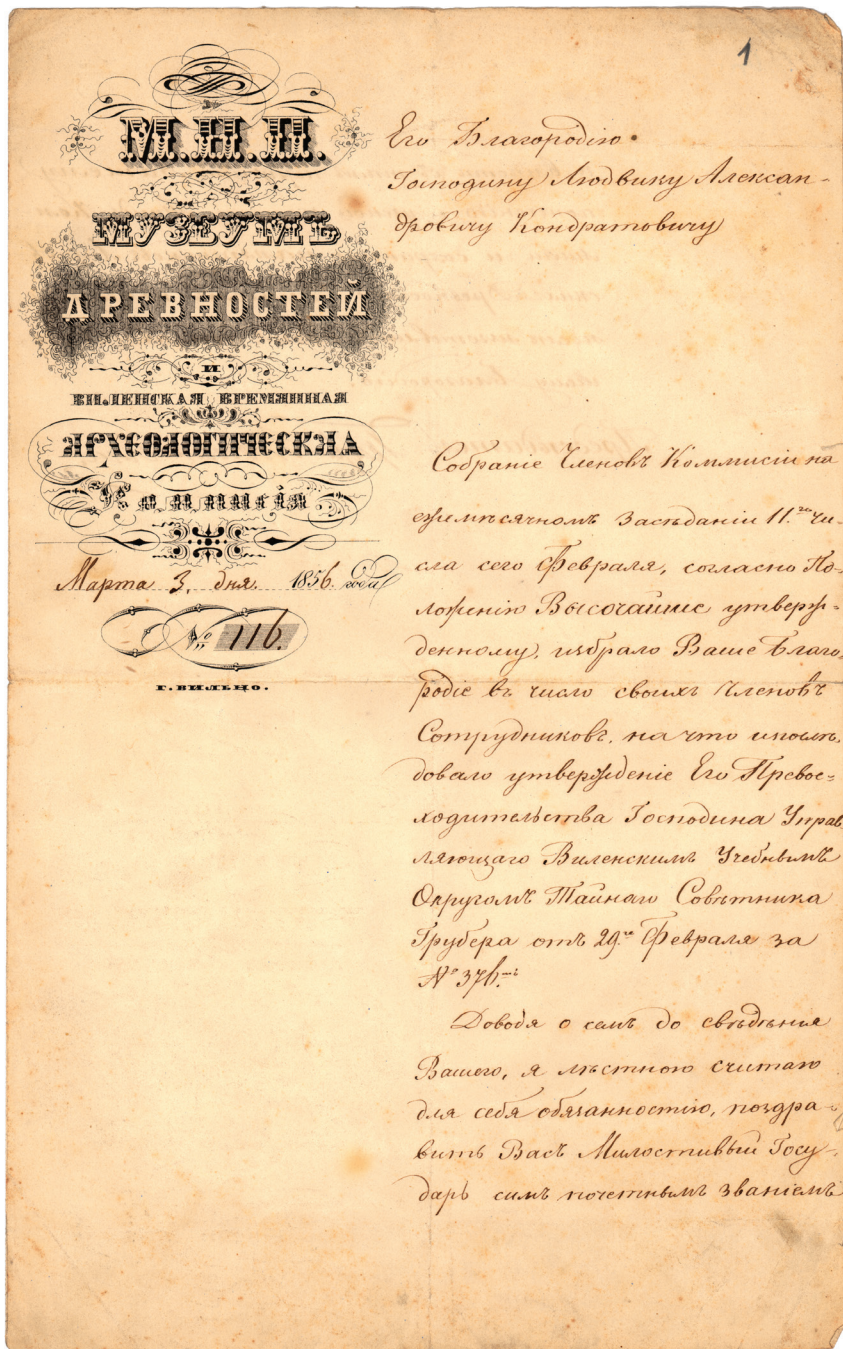 1
М.Н.П.
МУЗЕУМЪ
ДРЕВНОСТЕЙ
И
ВИЛЕНСКАЯ ВРЕМЯННАЯ
АРХЕОЛОГИЧЕСКАЯ
КОММИСІЯ
Марта 3. дня. 1856. года
№ 116.
Г. ВИЛЬНО.
Его Благородію
Господину Людвику Алексан-
дровичу Кондратовичу
Собраніе Членовъ Коммисіи на
ежемѣсячномъ Засѣданіи 11.го Чи-
сла сего Февраля, согласно По-
ложенію Высочайше утверж-
денному, избрало Ваше Благо-
родіе въ число своихъ Членовъ
Сотрудниковъ, на что
довало утвержденіе Его Превос-
ходительства Господина Управ
ляющаго Виленскимъ Учебнымъ
Округомъ Тайнаго Совѣтника
Грубера отъ 29го Февраля за
№ 376.
Доводя о семъ до свѣдѣнія
Вашего, я лестною считаю
для себя обязанностію, поздра-
вить Васъ Милостивый Госу-
дарь симъ почетнымъ званіемъ